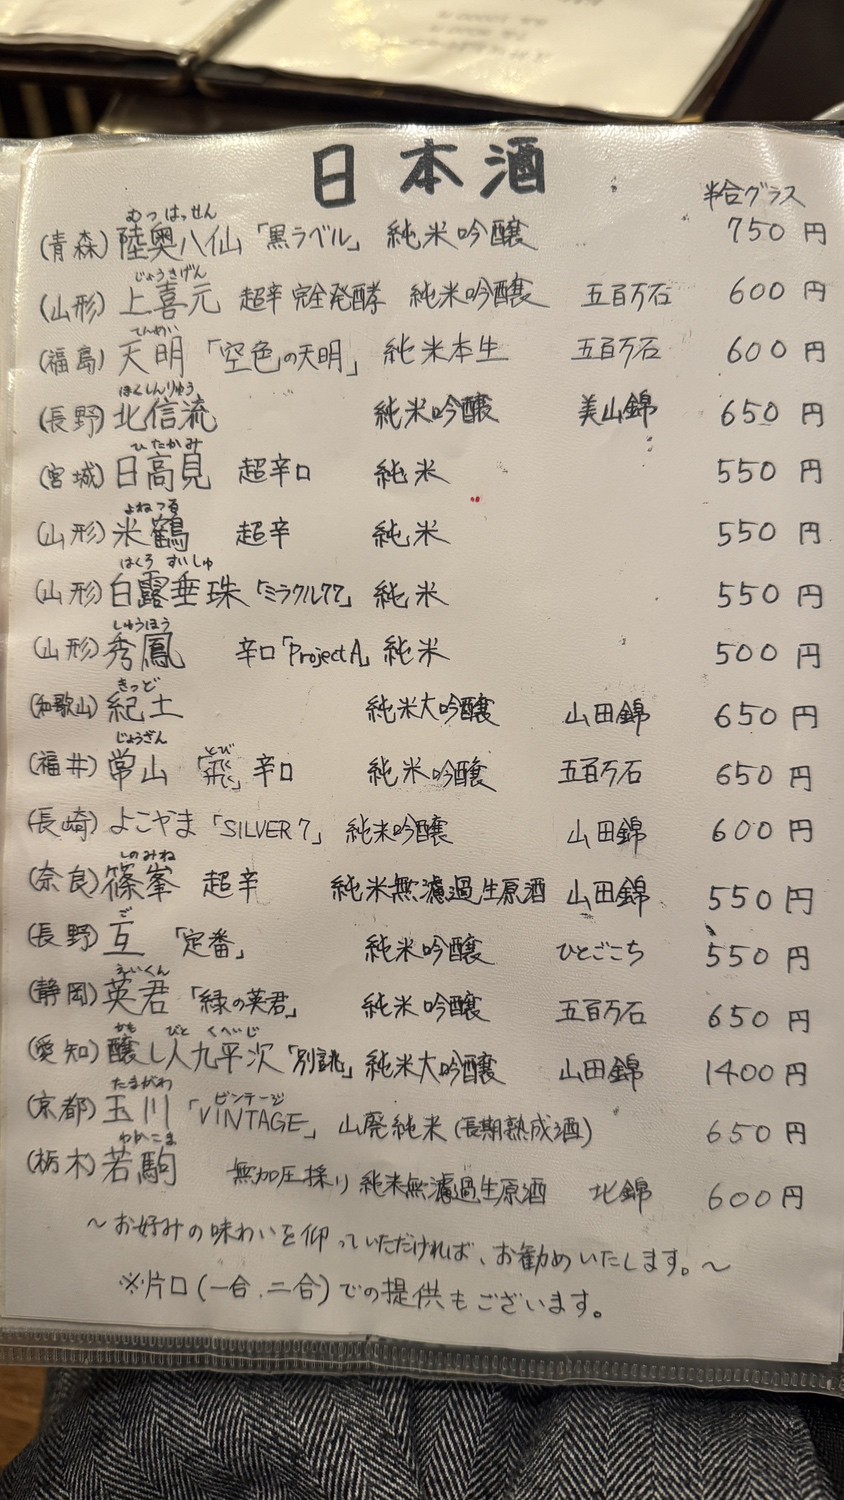 日本酒
半合グラス
(青森) 陸奥八仙 「黒ラベル」 純米吟醸 750円
むつはっせん
(山形) 上喜元 超辛 完全発酵 純米吟醸 五百万石 600円
じょうきげん
(福島) 天明 「空色の天明」 純米本生 五百万石 600円
てんめい
(長野) 北信流 純米吟醸 美山錦 650円
ほくしんりゅう
(宮城) 日高見 超辛口 純米 550円
ひたかみ
(山形) 米鶴 超辛 純米 550円
よねつる
(山形) 白露垂珠 「ミラクル77」 純米 550円
はくろ すいしゅ
(山形) 秀鳳 辛口「Project A」 純米 500円
しゅうほう
(和歌山) 紀土 純米大吟醸 山田錦 650円
きっど
(福井) 常山 「飛」 辛口 純米吟醸 五百万石 650円
じょうざん とび
(長崎) よこやま 「SILVER 7」 純米吟醸 山田錦 600円
(奈良) 篠峯 超辛 純米無濾過生原酒 山田錦 550円
しのみね
(長野) 互 「定番」 純米吟醸 ひとごこち 550円
ご
(静岡) 英君 「緑の英君」 純米吟醸 五百万石 650円
えいくん
(愛知) 醸し人九平次 「別誂」 純米大吟醸 山田錦 1400円
かも びと くへいじ
(京都) 玉川 「VINTAGE」 山廃純米 (長期熟成酒) 650円
たまがわ ビンテージ
(栃木) 若駒 無加圧採り 純米無濾過生原酒 北錦 600円
わかこま
~お好みの味わいを仰っていただければ、お勧めいたします。~
※片口(一合、二合)での提供もございます。